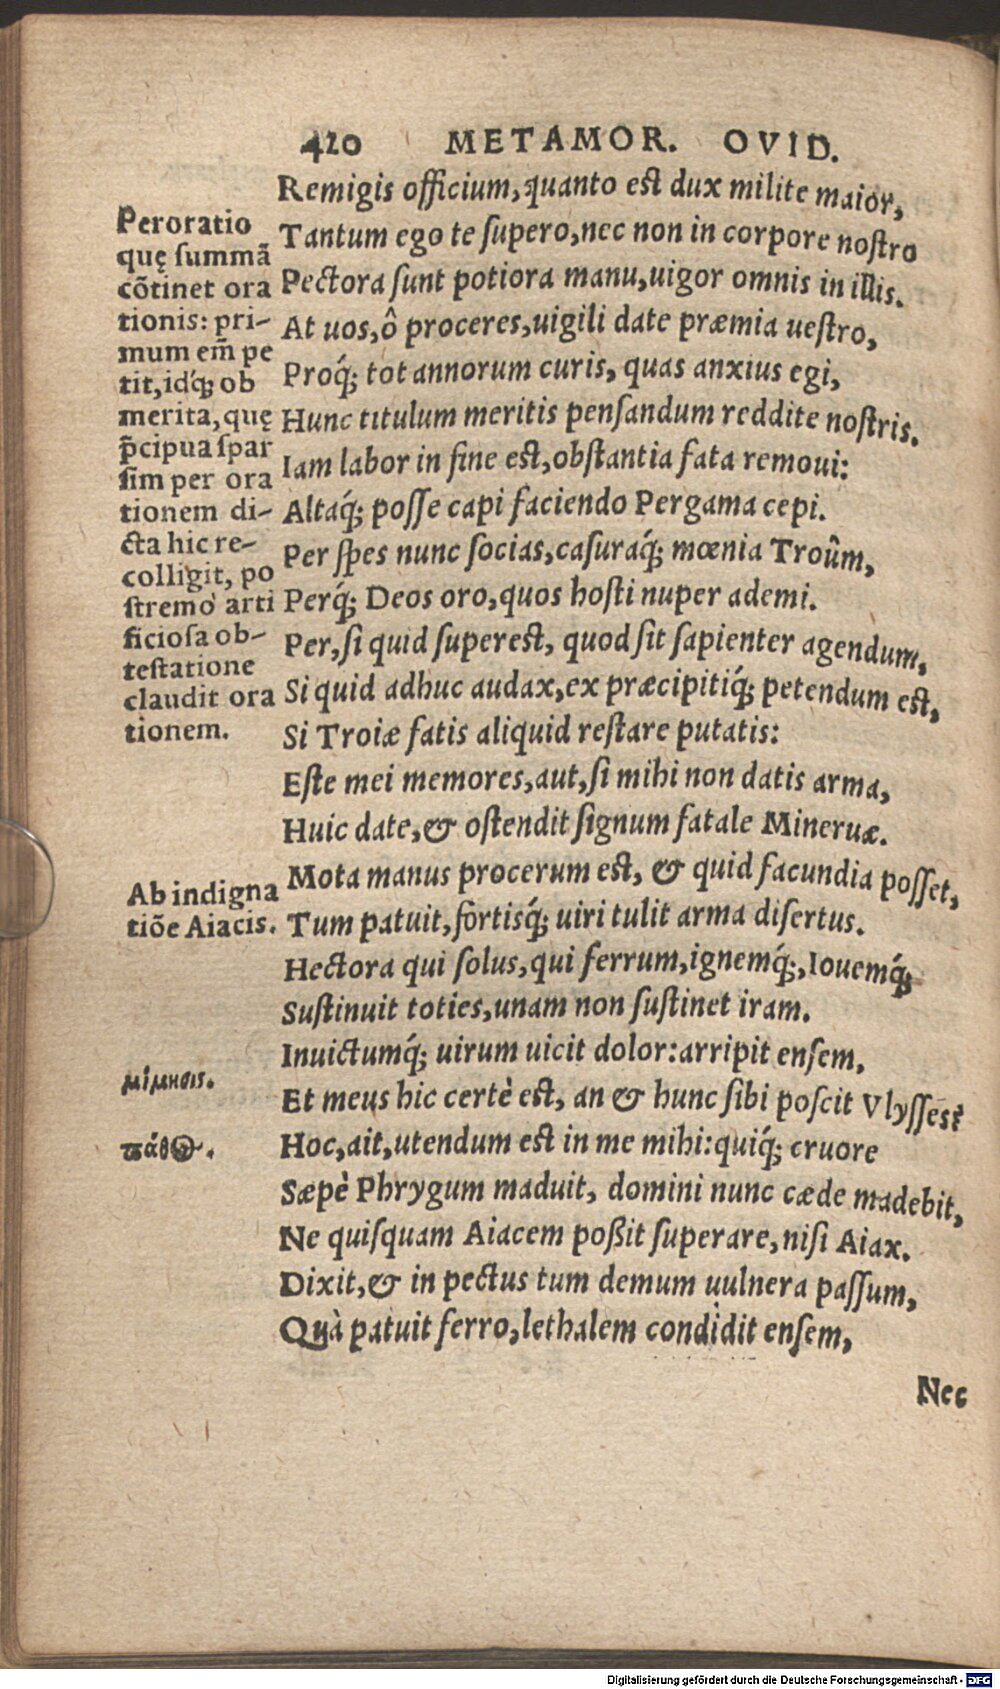 420 METAMOR. OVID.
Remigis officium, quanto est dux milite maior,
Tantum ego te supero, nec non in corpore nostro
Pectora sunt potiora manu, uigor omnis in illis.
At uos, ô proceres, uigili date præmia uestro,
Proq́; tot annorum curis, quas anxius egi,
Hunc titulum meritis pensandum reddite nostris.
Iam labor in fine est, obstantia fata remoui:
Altaq́; posse capi faciendo Pergama cepi.
Per spes nunc socias, casuraq́; mœnia Troûm,
Perq́; Deos oro, quos hosti nuper ademi.
Per, si quid superest, quod sit sapienter agendum,
Si quid adhuc audax, ex præcipitiq́; petendum est,
Si Troiæ fatis aliquid restare putatis:
Este mei memores, aut, si mihi non datis arma,
Huic date, & ostendit signum fatale Mineruæ.
Mota manus procerum est, & quid facundia posset,
Tum patuit, fortisq́; uiri tulit arma disertus.
Hectora qui solus, qui ferrum, ignemq́;, Iouemq́;
Sustinuit toties, unam non sustinet iram.
Inuictumq́; uirum uicit dolor: arripit ensem,
Et meus hic certè est, an & hunc sibi poscit Vlysses?
Hoc, ait, utendum est in me mihi: quiq́; cruore
Sæpè Phrygum maduit, domini nunc cæde madebit,
Ne quisquam Aiacem poßit superare, nisi Aiax.
Dixit, & in pectus tum demum uulnera passum,
Quà patuit ferro, lethalem condidit ensem,
Nec
Peroratio
quę summā
cõtinet ora
tionis: pri-
mum em̃ pe
tit, idq́; ob
merita, quę
p̃cipua spar
sim per ora
tionem di-
cta hic re-
colligit, po
stremò arti
ficiosa ob-
testatione
claudit ora
tionem.
Ab indigna
tiõe Aiacis.
μίμησις.
πάθος.
Digitalisierung gefördert durch die Deutsche Forschungsgemeinschaft - DFG